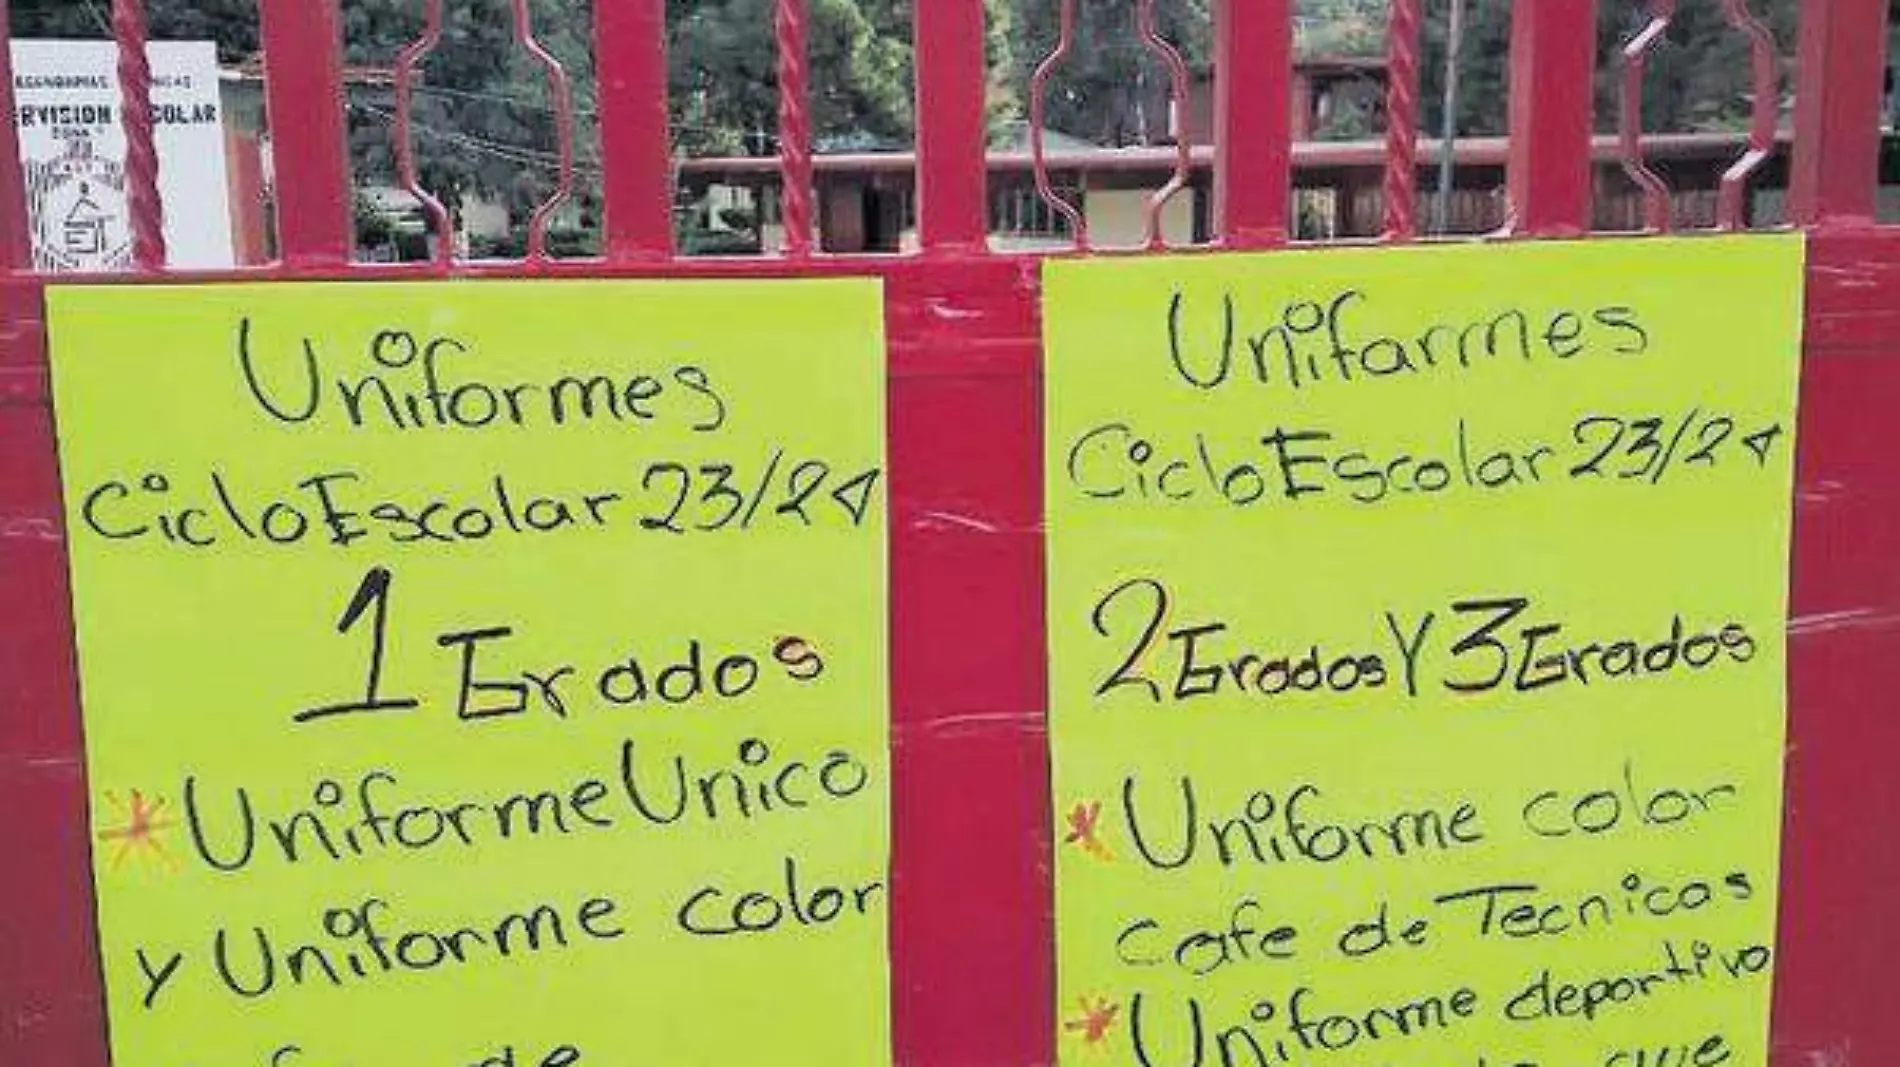 ESCOLAR
ZONA
Uniformes
Ciclo Escolar 23/24
1 Grados
Uniforme Unico
y Uniforme color
de
Uniformes
Ciclo Escolar 23/24
2 Grados Y 3 Grados
Uniforme color
Cafe de Tecnicas
Uniforme deportivo
que